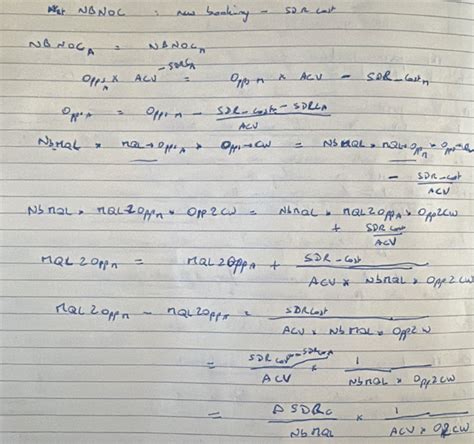 Net NBNOC : new booking - SDR cost
NBNOC_A = NBNOC_M
Opps_A × ACV - SDRC_A = Opps_M × ACV - SDR_cost_M
Opps_A = Opps_M - (SDR_cost_M - SDRC_A) / ACV
NbMQL × MQL→Opp_A × Opp→CW = NbMQL × MQL→Opp_M × Opp→CW
- SDR_cost / ACV
NbMQL × MQL2Opp_M × Opp2CW = NbMQL × MQL2Opp_A × Opp2CW
+ SDR cost / ACV
MQL2Opp_M = MQL2Opp_A + SDR_cost / (ACV × NbMQL × Opp2CW)
MQL2Opp_M - MQL2Opp_A = SDRCost / (ACV × NbMQL × Opp2CW)
= (SDRCost - SDRCost_A) / ACV × 1 / (NbMQL × Opp2CW)
= ΔSDRC / NbMQL × 1 / (ACV × Opp2CW)